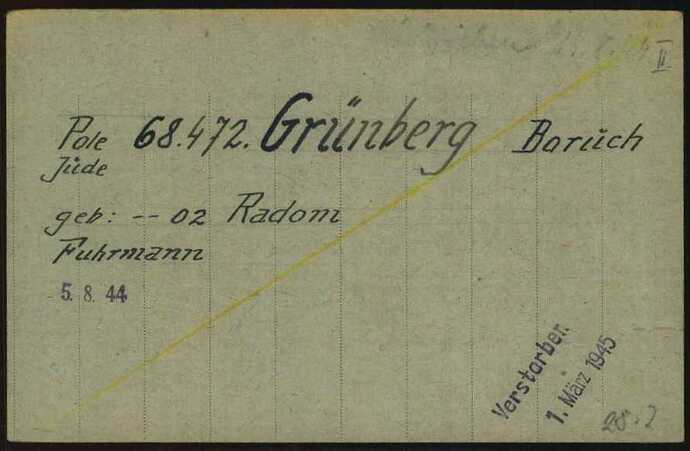 II
Pole 68.472. Grünberg Baruch
Jude
geb: -- 02 Radom
Fuhrmann
5. 8. 44
Verstorben
1. März 1945
28.2